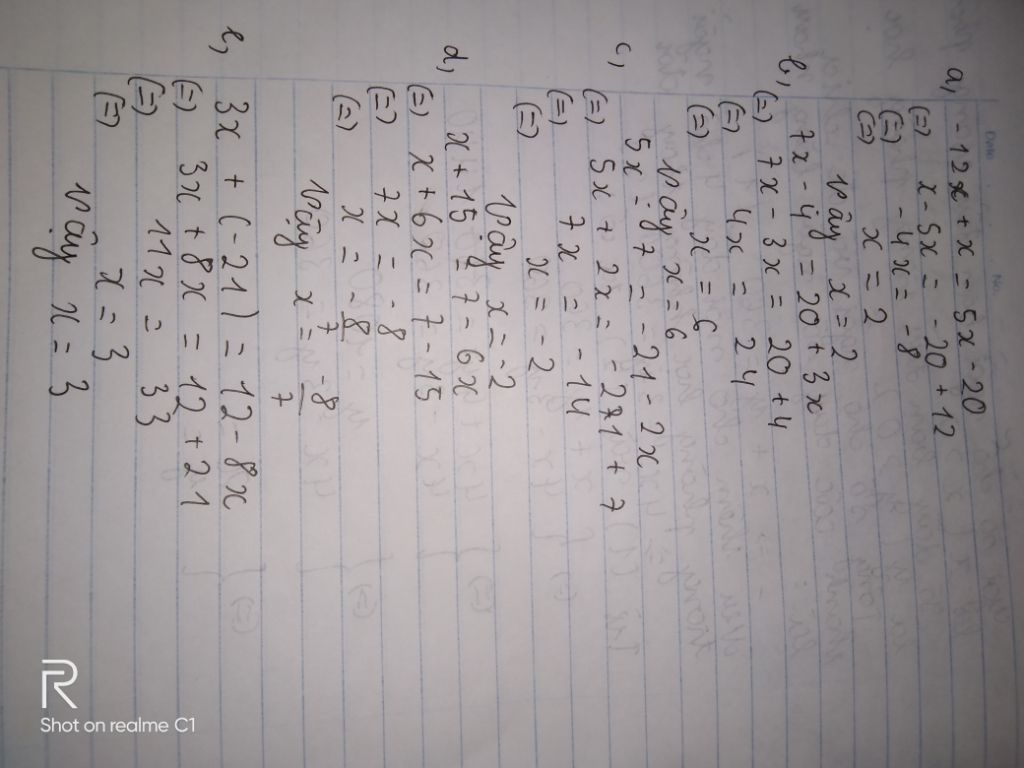 Date No.
a, -12 + x = 5x - 20
(=) x - 5x = -20 + 12
(=) -4x = -8
(=) x = 2
Vậy x = 2
b, 7x - 4 = 20 + 3x
(=) 7x - 3x = 20 + 4
(=) 4x = 24
(=) x = 6
Vậy x = 6
c, 5x - 7 = -21 - 2x
(=) 5x + 2x = -21 + 7
(=) 7x = -14
(=) x = -2
Vậy x = -2
d, x + 15 = 7 - 6x
(=) x + 6x = 7 - 15
(=) 7x = -8
(=) x = -8/7
Vậy x = -8/7
e, 3x + (-21) = 12 - 8x
(=) 3x + 8x = 12 + 21
(=) 11x = 33
(=) x = 3
Vậy x = 3
R
Shot on realme C1